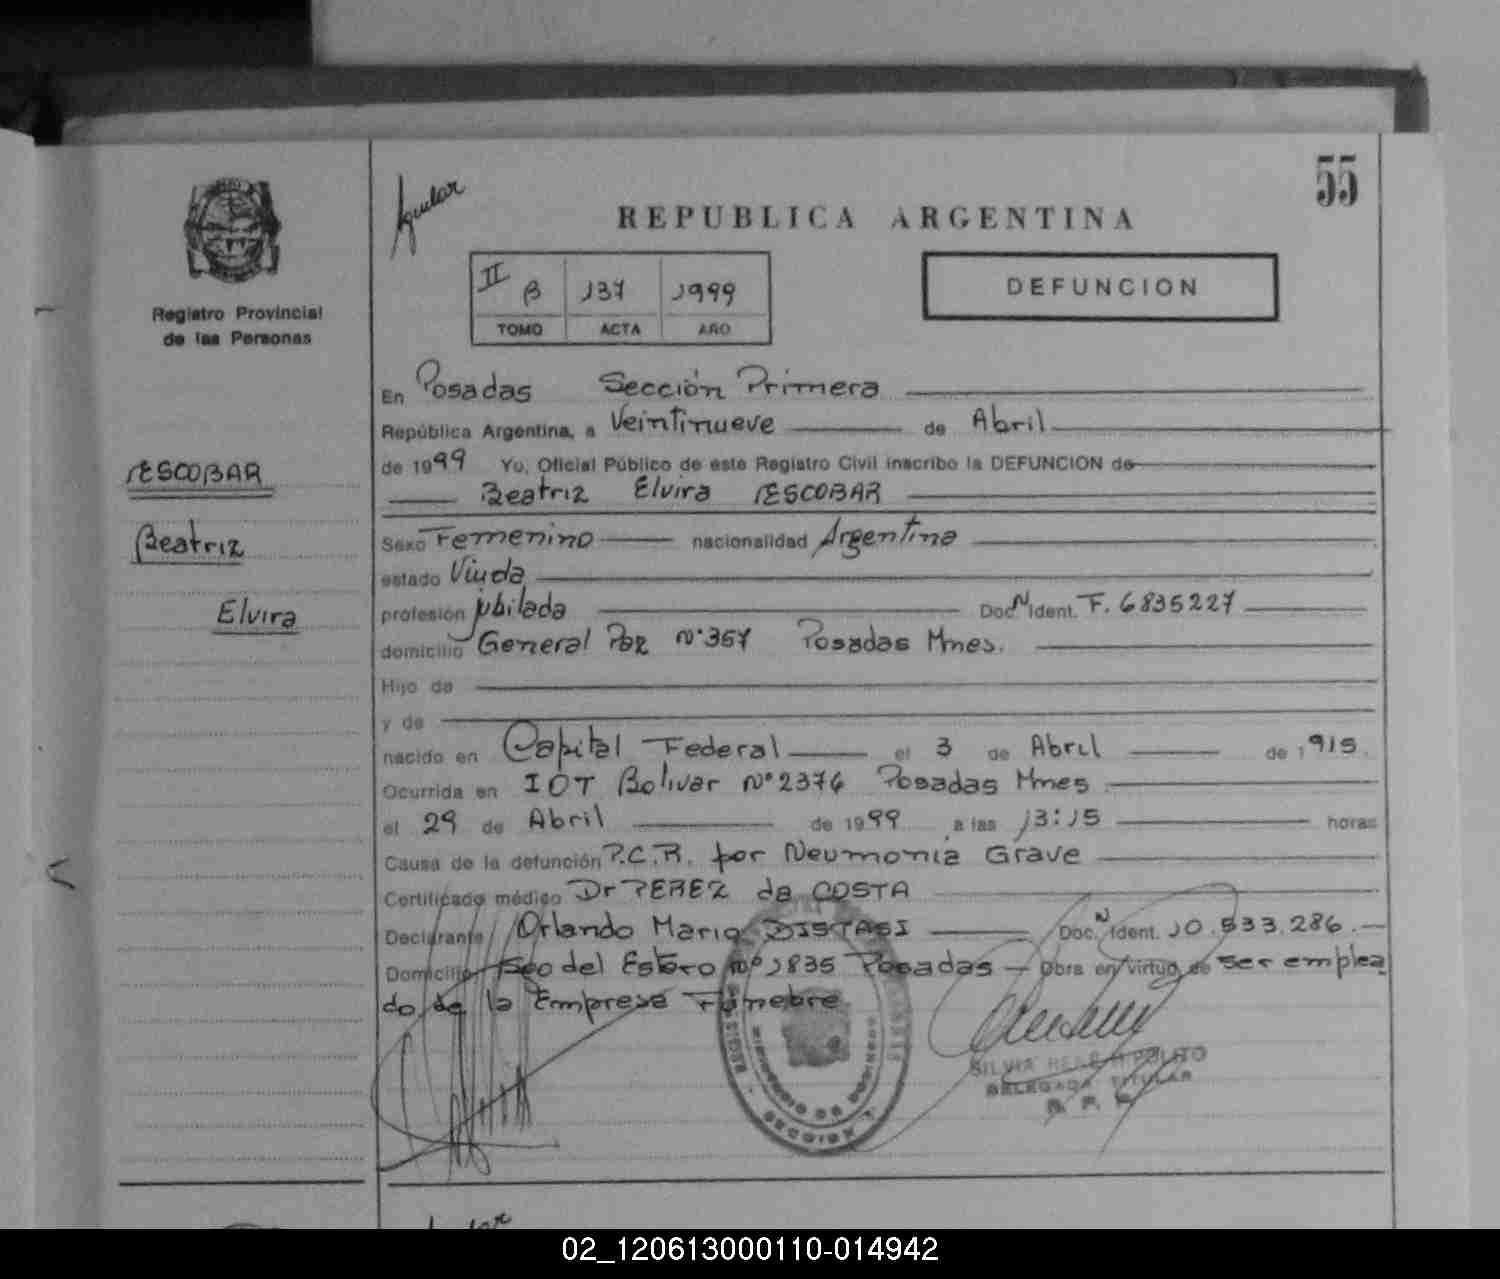 55
Aguilar
REPUBLICA ARGENTINA
II B 137 1999
TOMO ACTA AÑO
DEFUNCION
Registro Provincial
de las Personas
ESCOBAR
Beatriz
Elvira
En Posadas Sección Primera
República Argentina, a Veintinueve de Abril
de 1999 Yo, Oficial Público de este Registro Civil inscribo la DEFUNCION de
Beatriz Elvira ESCOBAR
Sexo Femenino nacionalidad Argentina
estado Viuda
profesión jubilada Doc N Ident. F. 6835227
domicilio General Paz Nº 357 Posadas Mnes.
Hijo de
y de
nacido en Capital Federal el 3 de Abril de 1915.
Ocurrida en IOT Bolivar Nº 2376 Posadas Mnes
el 29 de Abril de 1999 a las 13:15 horas
Causa de la defunción P.C.R. por Neumonia Grave
Certificado médico Dr PEREZ da COSTA
Declarante Orlando Mario DISTASI Doc. N Ident. 10.533.286.
Domicilio Sgo del Estero Nº 1835 Posadas - Obra en virtud de ser emplea
do de la Empresa Fúnebre
MINISTERIO DE GOBIERNO
SECCION 1
SILVIA HIPOLITO
DELEGADA TITULAR
R. P. P.
02_120613000110-014942